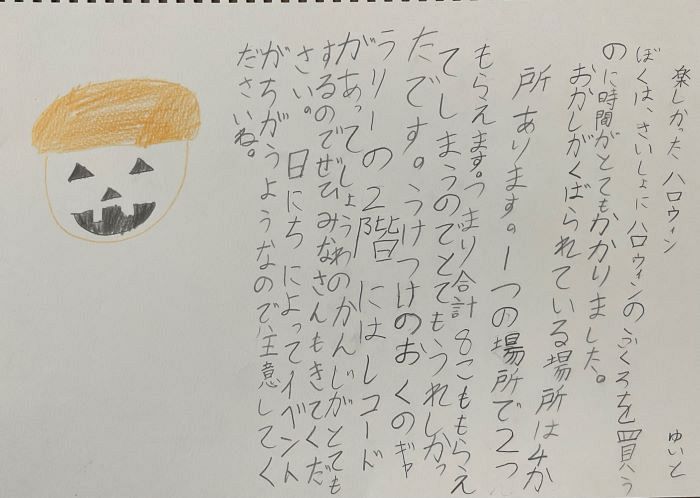 楽しかったハロウィン
ゆいと
ぼくは、さいしょにハロウィンのふくろを買う
のに時間がとてもかかりました。
おかしがくばられている場所は4か
所あります。1つの場所で2つ
もらえます。つまり合計8こももらえ
てしまうのでとてもうれしかっ
たです。うけつけのおくのギャ
ラリーの2階にはレコード
があってしょうわのかんじがとても
するのでぜひみなさんもきてくだ
さい。日にちによってイベント
がちがうようなので注意してく
ださいね。